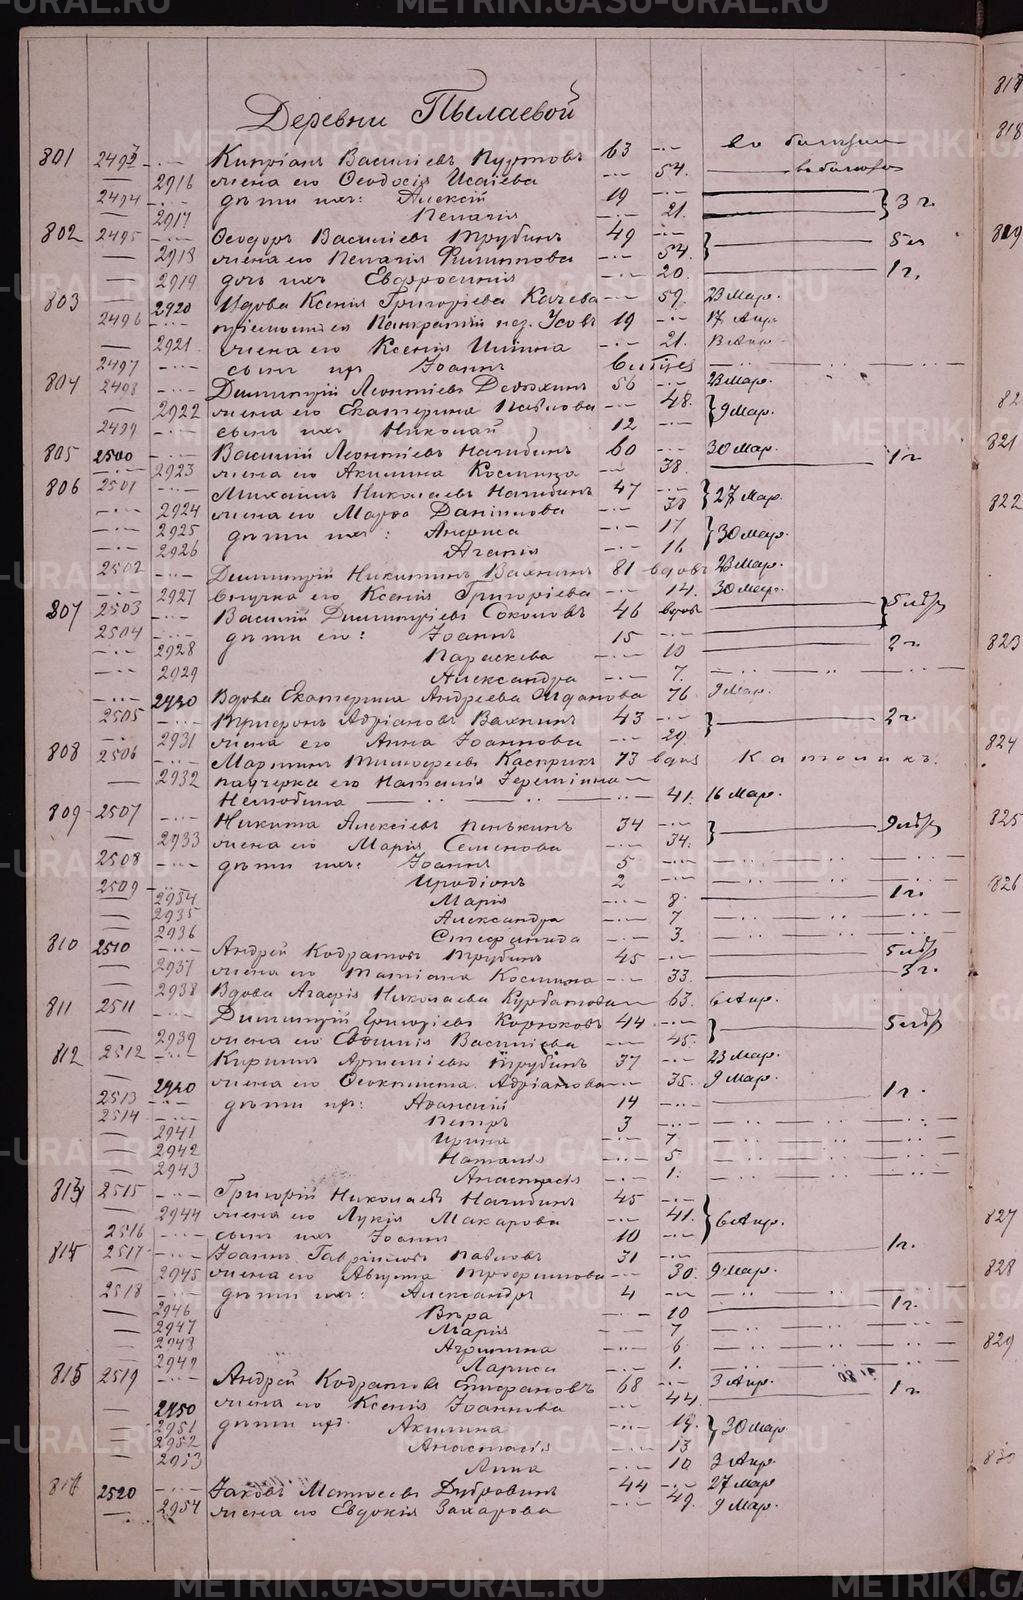 Деревни Пылаевой
801 2493 Кипріанъ Василіевъ 63
2916 жена его Ѳеодосія Исаіева 54.
2494 дѣти ихъ: Алексій 19 3 г.
2917 Пелагія 21.
802 2495 Ѳеодоръ Василіевъ Трубинъ 49
2918 жена его Пелагія Филиппова 54.
2919 дочь ихъ Евфросинія 20. 1 г.
803 2920 Вдова Ксенія Григоріева Качева 59. 23 Мар.
2496 Панкратій нез. Усовъ 19 17 Апр
2921 жена его Ксенія 21.
2497 сынъ их Іоаннъ
804 2498 Димитрій Леонтіевъ 56 23 Мар.
2922 жена его Екатерина Павлова 48. 9 Мар.
2499 сынъ ихъ Николай 12
805 2500 Василій Леонтіевъ Нагибинъ 60 30 Мар. 1 г
2923 жена его Акилина Космина 38.
806 2501 Михаилъ Николаевъ Нагибинъ 47 27 Мар.
2924 жена его Марѳа Даніилова 38
2925 дѣти ихъ: Анфиса 17 30 Мар.
2926 Агапія 16
2502 Димитрій Никитинъ Вахнинъ 81 вдовъ 23 Мар.
2927 внучка его Ксенія Григоріева 14. 30 Мар.
807 2503 Василій Димитріевъ Соколовъ 46 вдовъ
2504 дѣти его: Іоаннъ 15
2928 Параскева 10 2 г.
2929 Александра 7.
2930 Вдова Екатерина Андреева Жданова 76. 9 Мар.
2505 Трифонъ Адріановъ Вахнинъ 43 2 г.
2931 жена его Анна Іоаннова 29.
808 2506 Мартинъ Тимоѳеевъ 73 вдов Католикъ.
2932 падчерка его Наталія Іереміина
Нелюбина 41. 16 Мар.
809 2507 Никита Алексіевъ Пенькинъ 34
2933 жена его Марія Семенова 34.
2508 дѣти ихъ: Іоаннъ 5
2509 Иродіонъ 2
2934 Марія 8. 1 г.
2935 Александра 7.
2936 Стефанида 3.
810 2510 Андрей Кодратовъ Трубинъ 45
2937 жена его Татіана Космина 33. 3 г.
2938 Вдова Агафія Николаева Курбатова 63. 6 Апр.
811 2511 Димитрій Григоріевъ Корюковъ 44
2939 жена его Евфимія Василіева 45.
812 2512 Кириллъ Артеміевъ Трубинъ 37 23 Мар.
2940 жена его Ѳеоктиста Адріанова 35. 9 Мар.
2513 дѣти их: Аѳанасій 14 1 г.
2514 Петръ 3
2941 Ирина 7
2942 Наталія 5
2943 Анастасія 1.
813 2515 Григорій Николаевъ Нагибинъ 45
2944 жена его Лукія Макарова 41. 6 Апр.
2516 сынъ ихъ Іоаннъ 10 1 г.
814 2517 Іоаннъ Гавріиловъ Павловъ 31
2945 жена его Августа Трофимова 30. 9 Мар.
2518 дѣти ихъ: Александръ 4
2946 Вѣра 10 1 г.
2947 Марія 7
2948 Агриппина 6
2949 Лариса 1.
815 2519 Андрей Кодратовъ Епифановъ 68 3 Апр.
2950 жена его Ксенія Іоаннова 44. 1 г
2951 дѣти их: Акилина 19. 30 Мар.
2952 Анастасія 13
2953 Анна 10 3 Апр.
816 2520 Іаковъ Матѳеевъ Дубровинъ 44 27 Мар
2954 жена его Евдокія Захарова 49. 9 Мар.